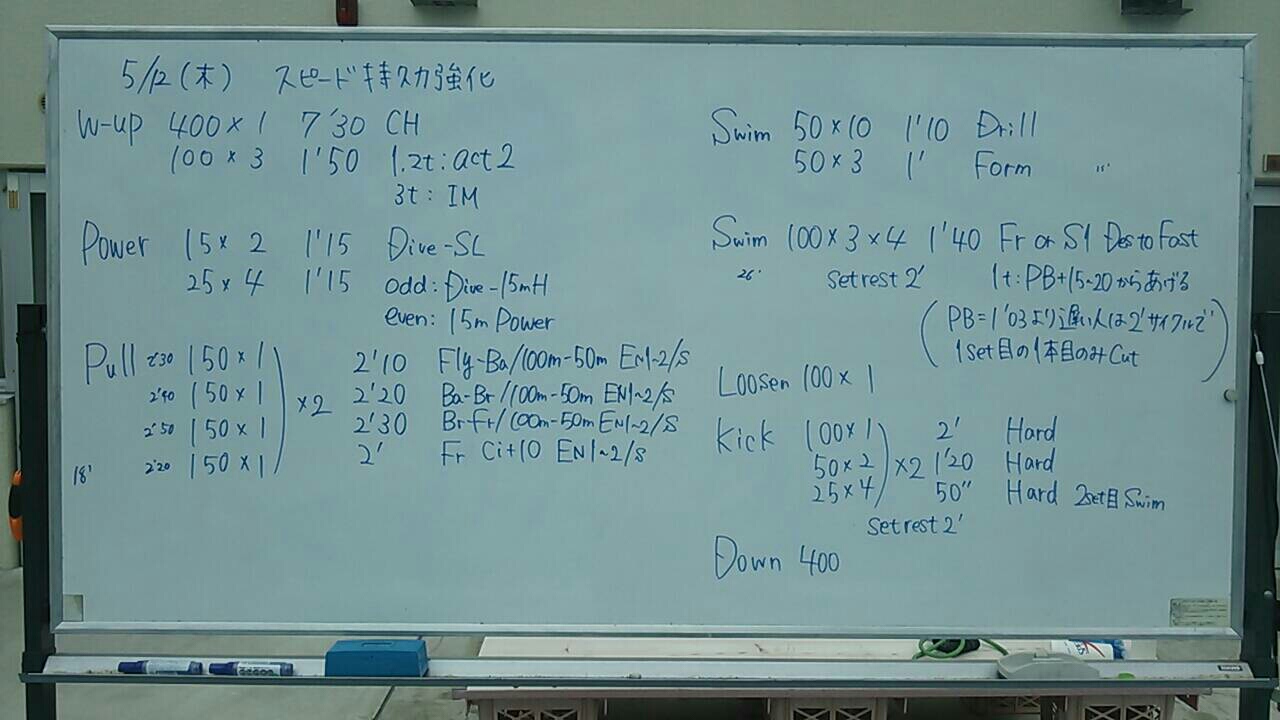 5/12(木) スピード持久力強化
W-up 400×1 7'30 CH
100×3 1'50 1.2t:act2
3t: IM
Power 15×2 1'15 Dive-SL
25×4 1'15 odd:Dive-15mH
even:15m Power
Pull 2'30 150×1 2'10 Fly-Ba/100m-50m EN1~2/S
2'40 150×1 ×2 2'20 Ba-Br/100m-50m EN1~2/S
2'50 150×1 2'30 Br-Fr/100m-50m EN1~2/S
18' 2'20 150×1 2' Fr Ci+10 EN1~2/S
Swim 50×10 1'10 Drill
50×3 1' Form 〃
Swim 100×3×4 1'40 Fr or S1 Des to Fast
26' set rest 2' 1t:PB+15~20からあげる
(PB=1'03より遅い人は2'サイクルで
1set目の1本目のみCut)
Loosen 100×1
Kick 100×1 2' Hard
50×2 ×2 1'20 Hard
25×4 50" Hard 2set目Swim
set rest 2'
Down 400